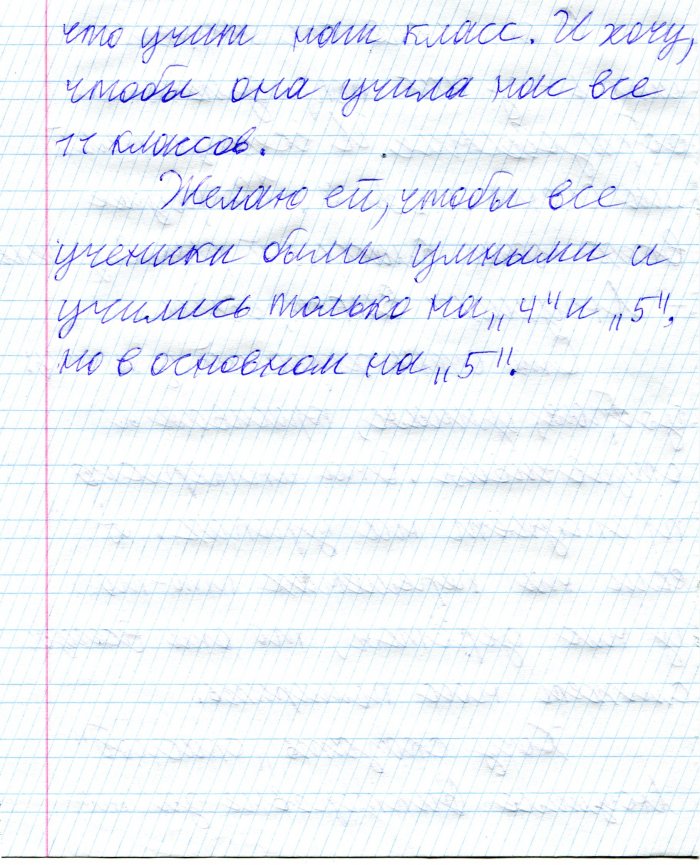 что учит наш класс. И хочу,
чтобы она учила нас все
11 классов.
Желаю ей, чтобы все
ученики были умными и
учились только на „4" и „5",
но в основном на „5".